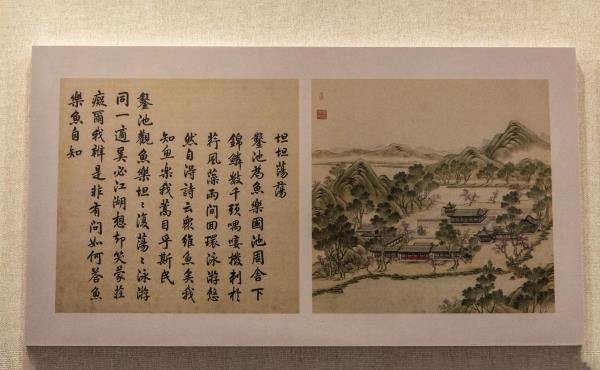 坦坦蕩蕩
鑿池為魚樂國池周舍下
錦鱗數千頭喁唼撥刺於
荇風藻雨間回環泳游悠
然自得詩云眾維魚矣我
知魚樂我蒿目乎斯民
鑿池觀魚樂坦〻復蕩〻泳游
同一適奚必江湖想却笑蒙莊
癡爾我辨是非有問如何答魚
樂魚自知